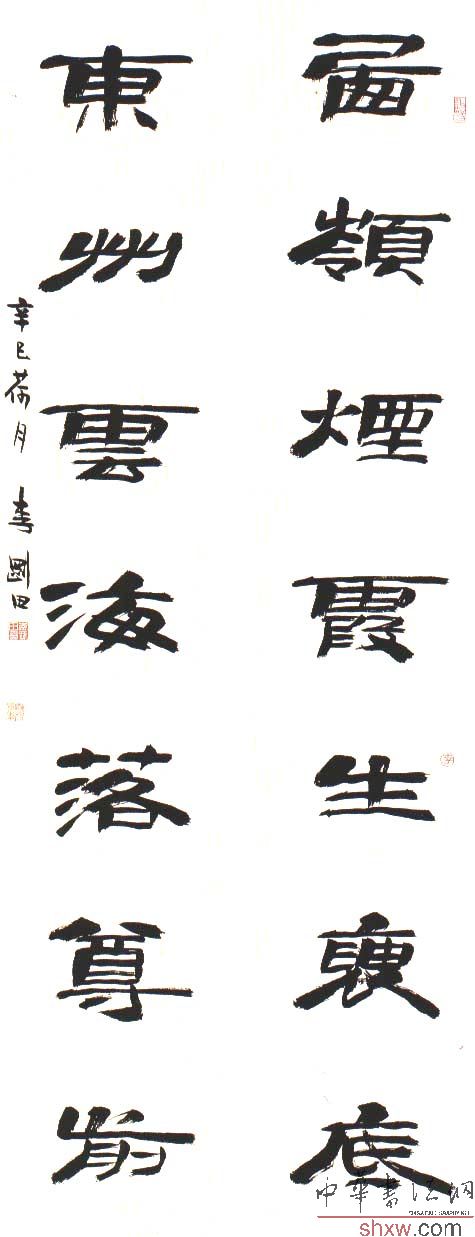 西嶺煙霞生褎底
東州雲海落尊前
辛巳荷月 李國田
中華書法網
shxw.com